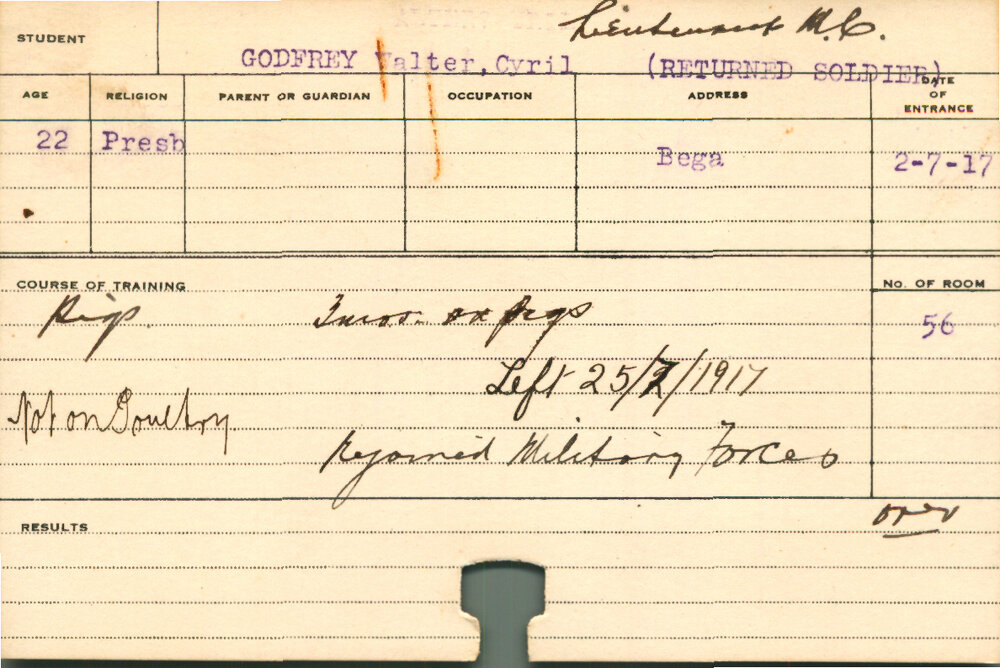 Lieutenant M.C.
STUDENT
GODFREY Walter, Cyril (RETURNED SOLDIER)
AGE RELIGION PARENT OR GUARDIAN OCCUPATION ADDRESS DATE OF ENTRANCE
22 Presb Bega 2-7-17
COURSE OF TRAINING No. OF ROOM
Pigs. on pigs 56
Left 25/7/1917
Not on Poultry
Rejoined Military Forces
RESULTS over